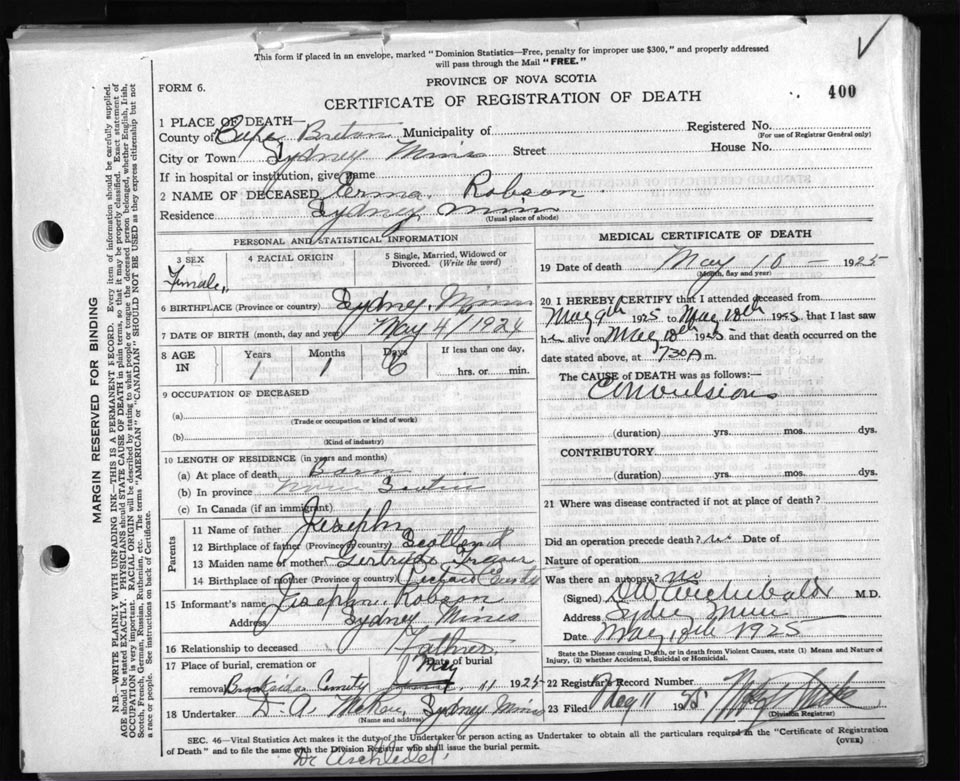 This form if placed in an envelope, marked "Dominion Statistics—Free, penalty for improper use $300," and properly addressed
will pass through the Mail "FREE."
PROVINCE OF NOVA SCOTIA
FORM 6.
CERTIFICATE OF REGISTRATION OF DEATH
400
1 PLACE OF DEATH—
County of Cape Breton Municipality of Registered No.
(For use of Registrar General only)
City or Town Sydney Mines Street House No.
If in hospital or institution, give name
2 NAME OF DECEASED Erma Robson
Residence Sydney Mines
(Usual place of abode)
PERSONAL AND STATISTICAL INFORMATION
3 SEX 4 RACIAL ORIGIN 5 Single, Married, Widowed or
Divorced. (Write the word)
Female
6 BIRTHPLACE (Province or country) Sydney Mines
7 DATE OF BIRTH (month, day and year) May 4/1924
8 AGE IN Years Months Days If less than one day,
1 1 6 hrs. or min.
9 OCCUPATION OF DECEASED
(a)
(Trade or occupation or kind of work)
(b)
(Kind of industry)
10 LENGTH OF RESIDENCE (in years and months)
(a) At place of death Born
(b) In province Nova Scotia
(c) In Canada (if an immigrant)
Parents
11 Name of father Joseph
12 Birthplace of father (Province or country) Scotland
13 Maiden name of mother Gertrude
14 Birthplace of mother (Province or country)
15 Informant's name Joseph Robson
Address Sydney Mines
16 Relationship to deceased Father
17 Place of burial, cremation or Date of burial
removal Brookside May 11 1925
18 Undertaker D. A. Sydney Mines
(Name and address)
MEDICAL CERTIFICATE OF DEATH
19 Date of death May 10 — 1925
(Month, day and year)
20. I HEREBY CERTIFY that I attended deceased from
May 9th 1925 to May 10th 1925 that I last saw
h alive on May 10th 1925 and that death occurred on the
date stated above, at 730 A m.
The CAUSE of DEATH was as follows:—
Convulsions
(duration) yrs. mos. dys.
CONTRIBUTORY
(duration) yrs. mos. dys.
21 Where was disease contracted if not at place of death?
Did an operation precede death? no Date of
Nature of operation
Was there an autopsy? no
(Signed) Archibald M.D.
Address Sydney Mines
Date May 1925
State the Disease causing Death, or in death from Violent Causes, state (1) Means and Nature of
Injury, (2) whether Accidental, Suicidal or Homicidal.
22 Registrar's Record Number
23 Filed May 11 1925
(Division Registrar)
SEC. 46—Vital Statistics Act makes it the duty of the Undertaker or person acting as Undertaker to obtain all the particulars required in the "Certificate of Registration
of Death" and to file the same with the Division Registrar who shall issue the burial permit. (OVER)
Dr Archibald
MARGIN RESERVED FOR BINDING
N.B.—WRITE PLAINLY, WITH UNFADING INK—THIS IS A PERMANENT RECORD. Every item of information should be carefully supplied.
AGE should be stated EXACTLY. PHYSICIANS should STATE CAUSE OF DEATH in plain terms, so that it may be properly classified. Exact statement of
OCCUPATION is very important. RACIAL ORIGIN will be described by stating to what people or tongue the deceased person belonged, whether English, Irish,
Scotch, French, German, Russian, Ruthenian, etc. The terms "AMERICAN" or "CANADIAN" SHOULD NOT BE USED as they express citizenship but not
a race or people. See instructions on back of Certificate.